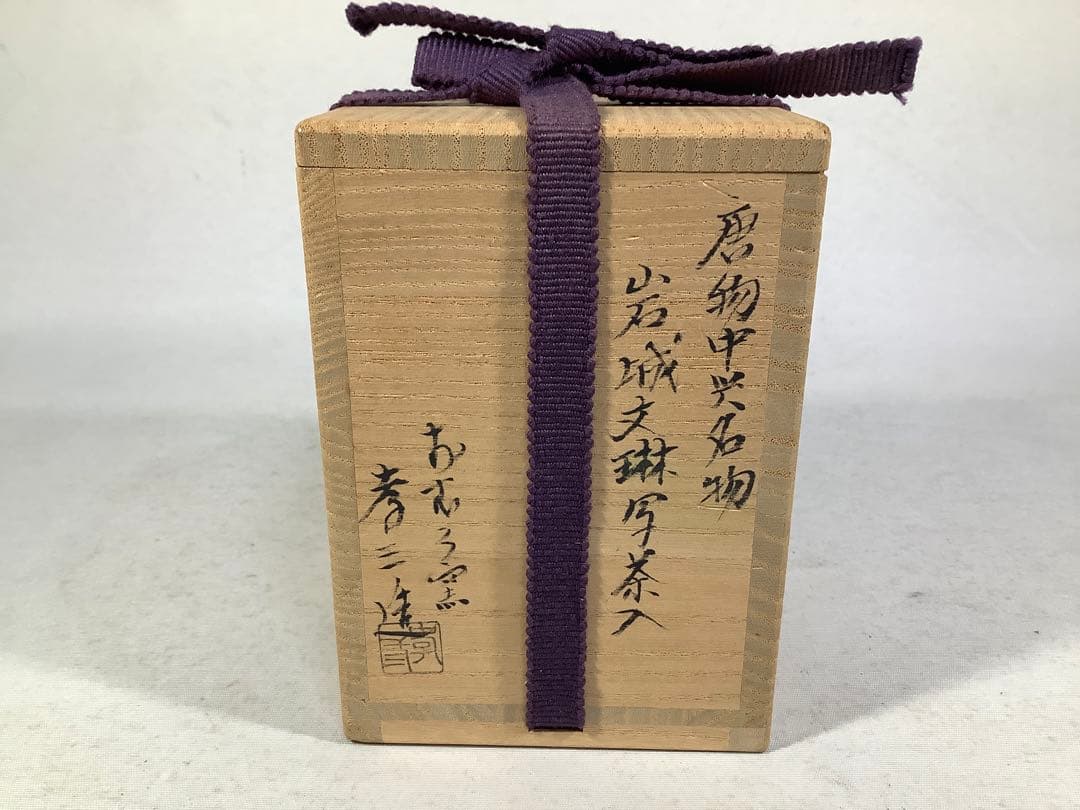 唐物中興名物
岩城文琳写茶入
孝三造